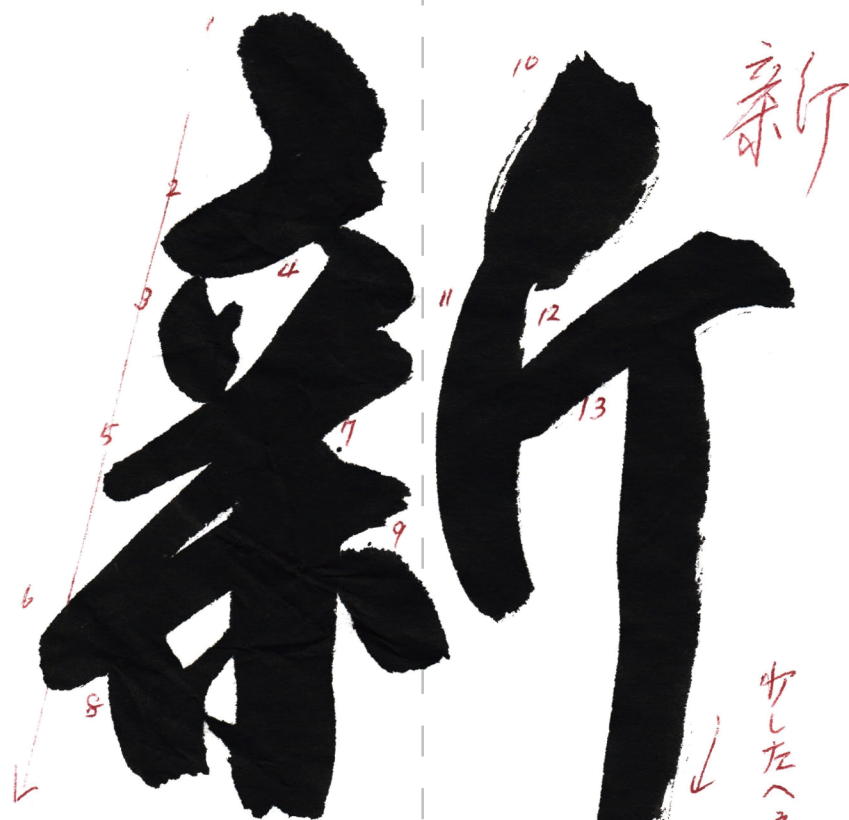 新
1
2
3
4
5
6
7
8
9
10
11
12
13
新
少し左へ